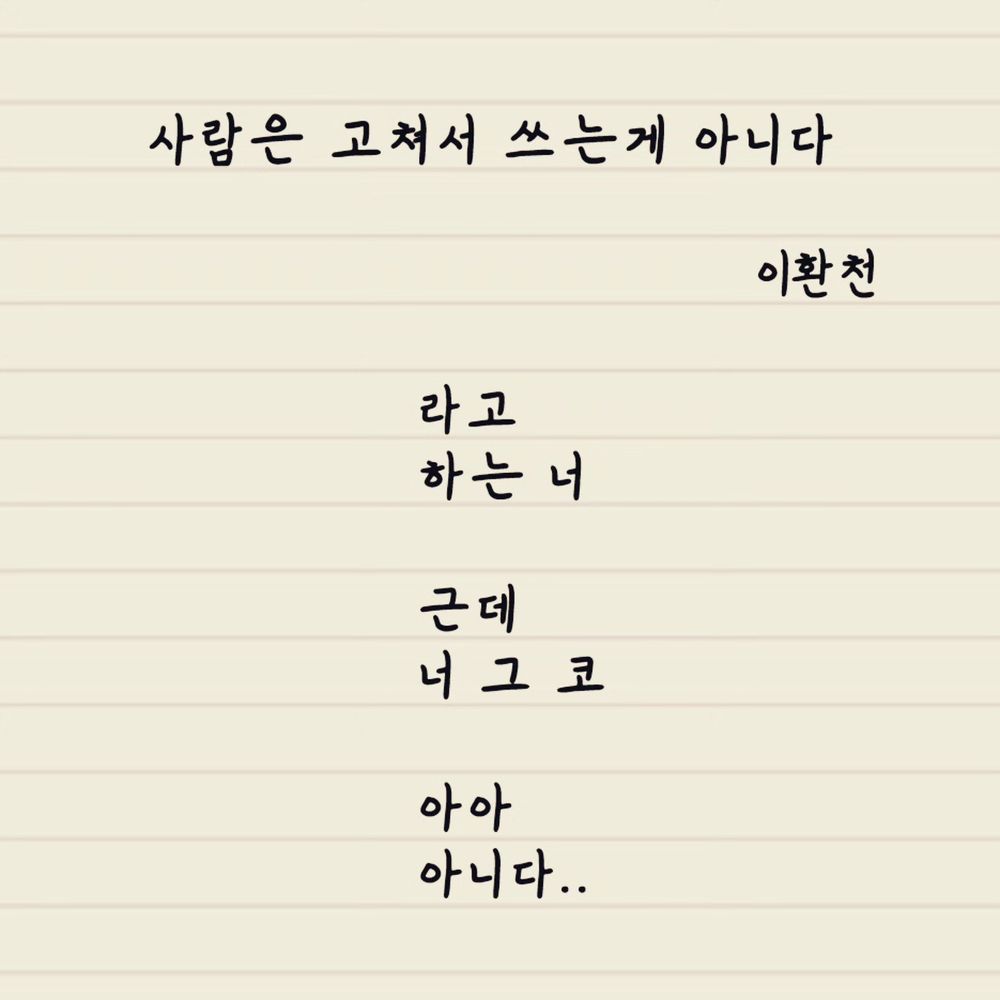 사람은 고쳐서 쓰는게 아니다
이환천
라고
하는 너
근데
너 그 코
아아
아니다..